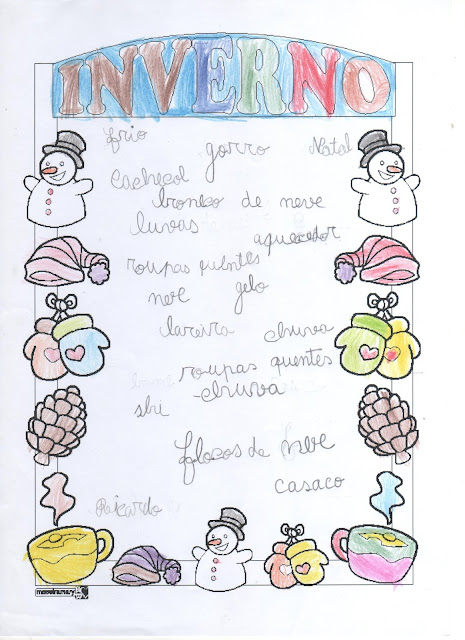 INVERNO
frio
gorro
Natal
cachecol
boneco de neve
luvas
aquecedor
roupas quentes
neve gelo
lareira chuva
roupas quentes
chuva
ski
flocos de neve
casaco
Ricardo